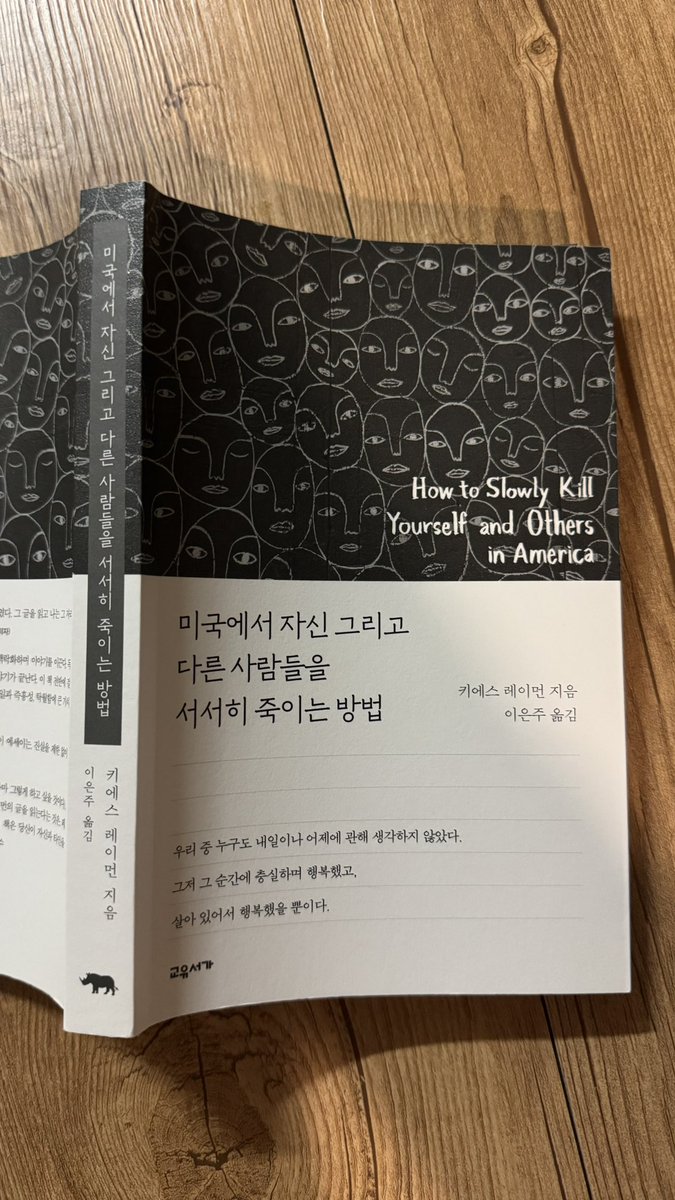 미국에서 자신 그리고 다른 사람들을 서서히 죽이는 방법
키에스 레이먼 지음
이은주 옮김
How to Slowly Kill
Yourself and Others
in America
미국에서 자신 그리고
다른 사람들을
서서히 죽이는 방법
키에스 레이먼 지음
이은주 옮김
우리 중 누구도 내일이나 어제에 관해 생각하지 않았다.
그저 그 순간에 충실하며 행복했고,
살아 있어서 행복했을 뿐이다.
교유서가